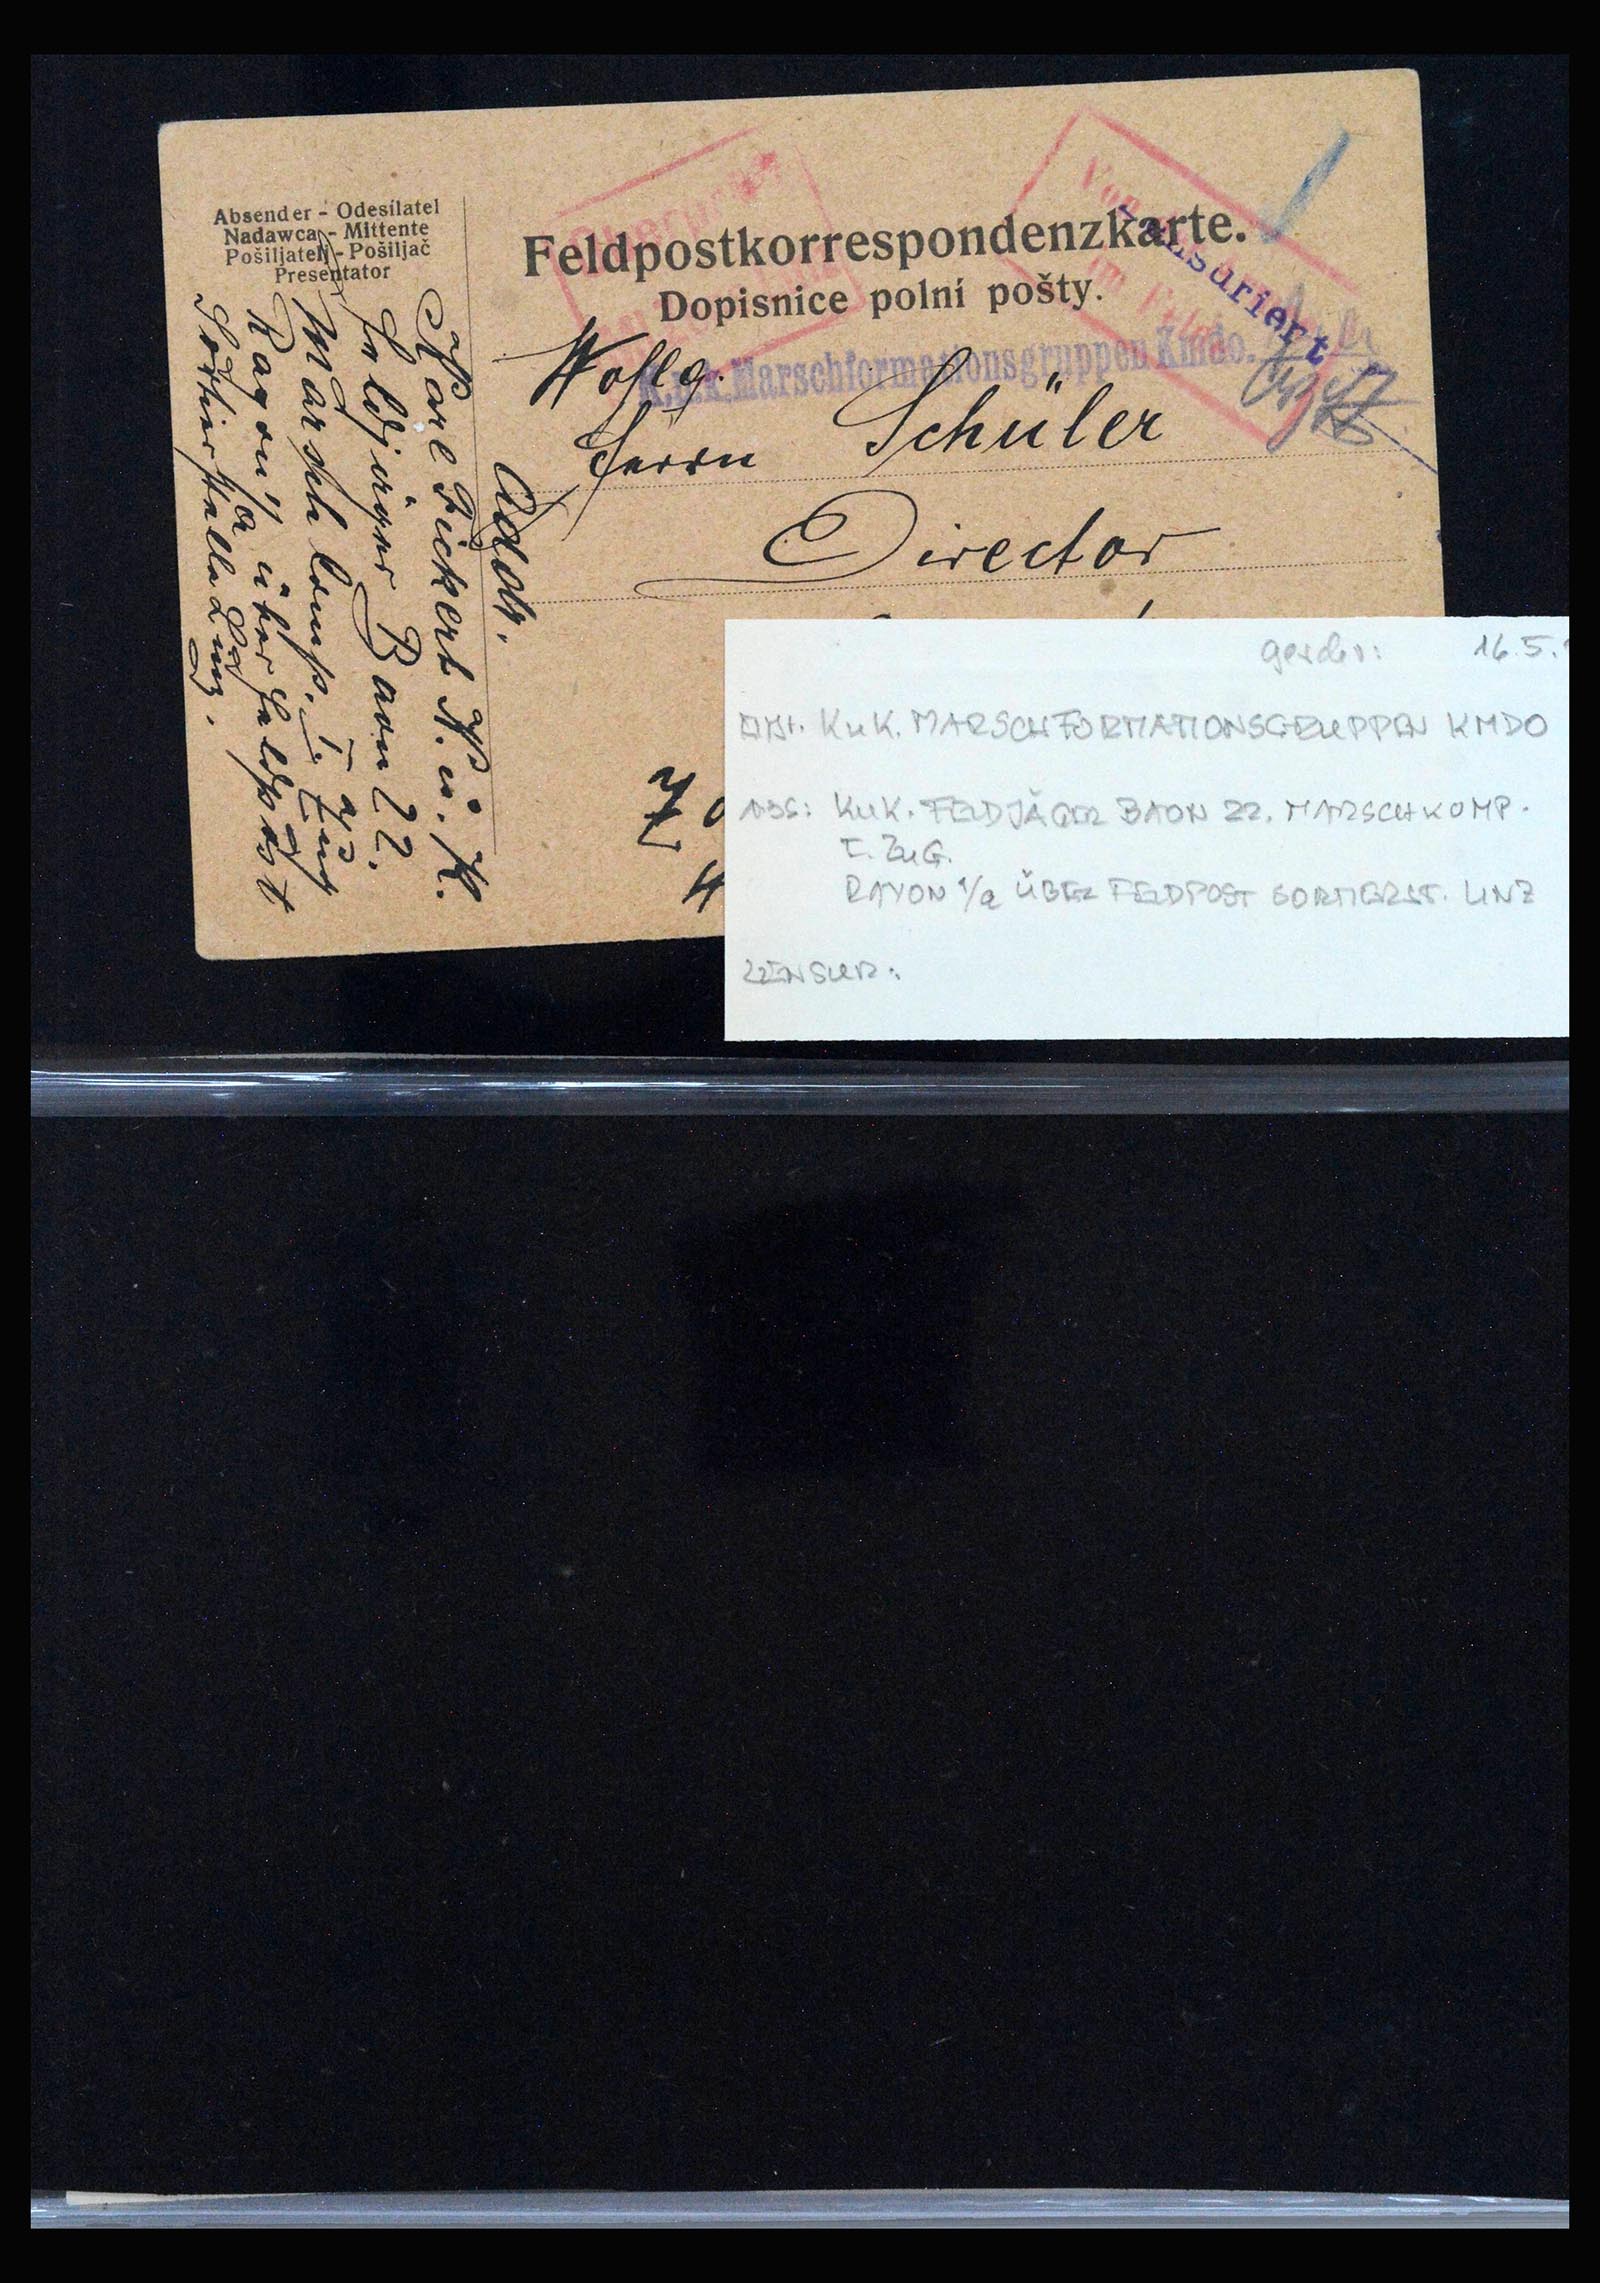 Absender - Odesílatel
Nadawca - Mittente
Pošiljatelj - Pošiljač
Presentator
Feldpostkorrespondenzkarte.
Dopisnice polní pošty.
Zensuriert
K.u.k. Marschformationsgruppen Kmdo.
Wohlg.
Herrn Schüler
Director
Addr.
Karl Fickert K. u. K.
Feldjäger Baon 22.
Marsch komp. I. Zug
Rayon 1/a über Feldpost
Sortierstelle Linz.
16. 5.
K u K. MARSCHFORMATIONSGRUPPEN KMDO
ABS: K u K. FELDJÄGER BAON 22. MARSCHKOMP.
I. ZUG.
RAYON 1/a ÜBER FELDPOST SORTIERST. LINZ
ZENSUR: